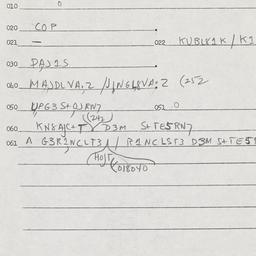 010 0
020 COP
021 — 022 KUBL81K / K1
030 DAJ1S
040 MAJDLVA:2 / JJNGL8VA:2 (252
050 UPG3S+OJRN7 051 0
(242)
060 KN8AJC+T Y D3M S+TE5RN7
061 A G3R1NCLT3J / R1NCLST3 D3M S+TE5
HOJT
(018040